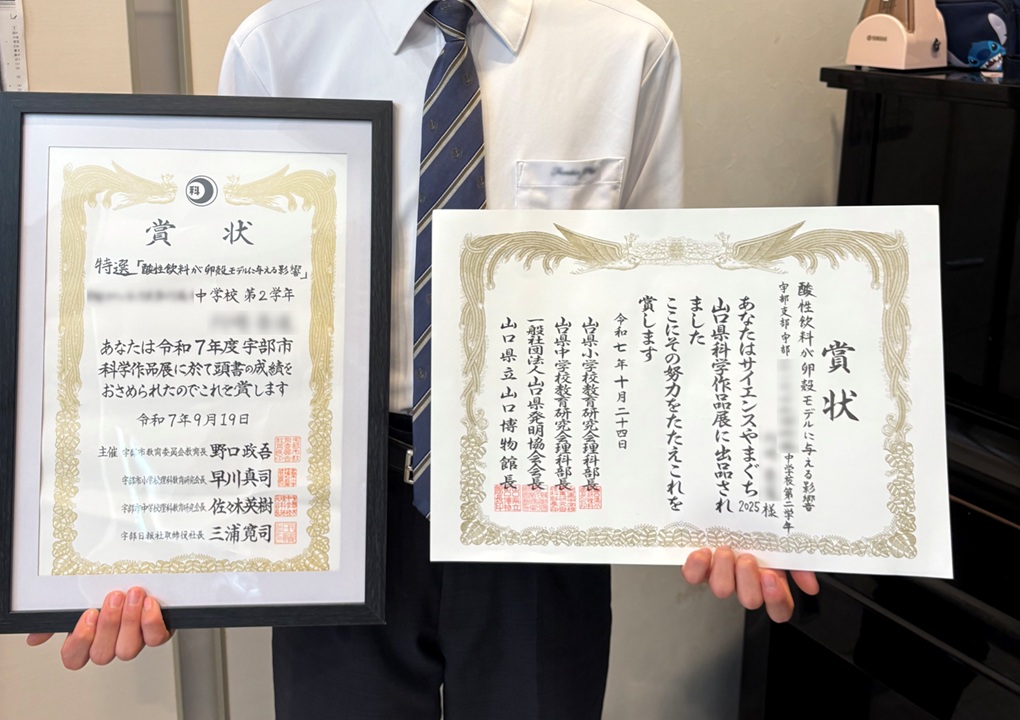 科
賞 状
特選「酸性飲料が卵殻モデルに与える影響」
中学校 第2学年
あなたは令和7年度宇部市
科学作品展に於て頭書の成績を
おさめられたのでこれを賞します
令和7年9月19日
主催 宇部市教育委員会教育長 野口政吾
宇部市小学校理科教育研究会長 早川真司
宇部市中学校理科教育研究会長 佐々木英樹
宇部日報社取締役社長 三浦寛司
賞状
酸性飲料が卵殻モデルに与える影響
宇部支部 宇部
中学校第二学年
様
あなたはサイエンスやまぐち2025
山口県科学作品展に出品され
ました
ここにその努力をたたえこれを
賞します
令和七年十月二十四日
山口県小学校教育研究会理科部長
山口県中学校教育研究会理科部長
一般社団法人山口県発明協会会長
山口県立山口博物館長
YAMAHA